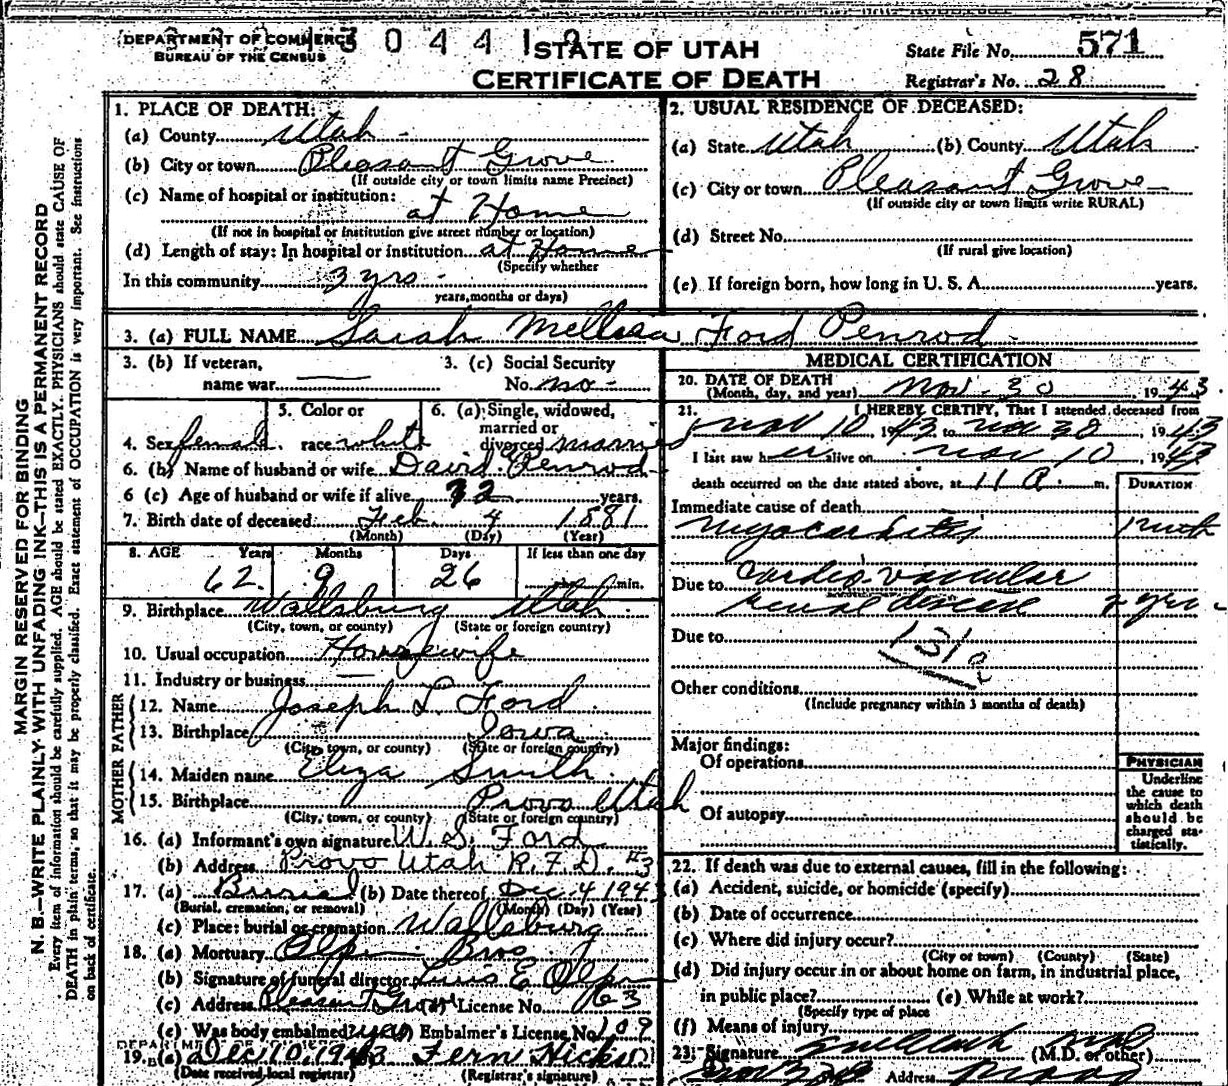 DEPARTMENT OF COMMERCE
BUREAU OF THE CENSUS
3 0 4 4 1
STATE OF UTAH
CERTIFICATE OF DEATH
State File No. 571
Registrar's No. 28
MARGIN RESERVED FOR BINDING
N. B.—WRITE PLAINLY WITH UNFADING INK—THIS IS A PERMANENT RECORD
Every item of information should be carefully supplied. AGE should be stated EXACTLY. PHYSICIANS should state CAUSE OF
DEATH in plain terms, so that it may be properly classified. Exact statement of OCCUPATION is very important. See instructions
on back of certificate.
1. PLACE OF DEATH:
(a) County Utah
(b) City or town Pleasant Grove
(If outside city or town limits name Precinct)
(c) Name of hospital or institution:
at Home
(If not in hospital or institution give street number or location)
(d) Length of stay: In hospital or institution at Home
(Specify whether
In this community 3 yrs
years, months or days)
2. USUAL RESIDENCE OF DECEASED:
(a) State Utah (b) County Utah
(c) City or town Pleasant Grove
(If outside city or town limits write RURAL)
(d) Street No.
(If rural give location)
(e) If foreign born, how long in U. S. A. years.
3. (a) FULL NAME Sarah Mellissa Ford Penrod
3. (b) If veteran,
name war
3. (c) Social Security
No. no
4. Sex female
5. Color or
race white
6. (a) Single, widowed,
married or
divorced married
6. (b) Name of husband or wife David Penrod
6 (c) Age of husband or wife if alive 72 years.
7. Birth date of deceased: Feb. 4 1881
(Month) (Day) (Year)
8. AGE Years Months Days If less than one day
62 9 26 min.
9. Birthplace Wallsburg Utah
(City, town, or county) (State or foreign country)
10. Usual occupation Housewife
11. Industry or business
FATHER
12. Name Joseph L Ford
13. Birthplace Iowa
(City, town, or county) (State or foreign country)
MOTHER
14. Maiden name Eliza Smith
15. Birthplace Provo Utah
(City, town, or county) (State or foreign country)
16. (a) Informant's own signature W. S. Ford
(b) Address Provo Utah R.F.D. #3
17. (a) Burial (b) Date thereof Dec 4 1943
(Burial, cremation, or removal) (Month) (Day) (Year)
(c) Place: burial or cremation Wallsburg
18. (a) Mortuary Olpin Bros
(b) Signature of funeral director E Olpin
(c) Address Pleasant Grove License No. 163
(e) Was body embalmed? yes Embalmer's License No. 109
19. (a) Dec 10, 1943 Fern Hicks
(Date received local registrar) (Registrar's signature)
MEDICAL CERTIFICATION
20. DATE OF DEATH
(Month, day, and year) Nov. 30, 1943
21. I HEREBY CERTIFY, That I attended deceased from
Nov 10, 1943 to Nov 30, 1943
I last saw her alive on Nov 10, 1943
death occurred on the date stated above, at 11 A. m.
DURATION
Immediate cause of death
myocarditis
Due to cardio vascular
renal disease 2 yrs
Due to
131a
Other conditions
(Include pregnancy within 3 months of death)
Major findings:
Of operations
Of autopsy
PHYSICIAN
Underline
the cause to
which death
should be
charged sta-
tistically.
22. If death was due to external causes, fill in the following:
(a) Accident, suicide, or homicide (specify)
(b) Date of occurrence
(c) Where did injury occur?
(City or town) (County) (State)
(d) Did injury occur in or about home on farm, in industrial place,
in public place? (e) While at work?
(Specify type of place
(f) Means of injury
23. Signature (M.D. or other)
Address Provo